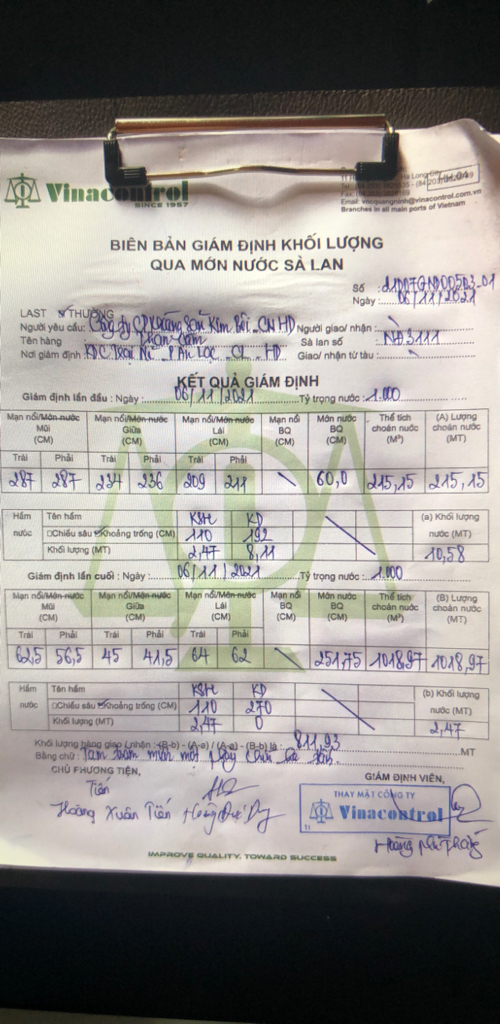 Vinacontrol
SINCE 1957
TH.04
Email: vncquangninh@vinacontrol.com.vn
Branches in all main ports of Vietnam
BIÊN BẢN GIÁM ĐỊNH KHỐI LƯỢNG
QUA MỚN NƯỚC SÀ LAN
Số :
Ngày : 06/11/2021
LAST THƯỜNG
Người yêu cầu: Công ty CP Xi măng Kim - CN HD Người giao/ nhận :
Tên hàng Sà lan số : NĐ3111
Nơi giám định CL - HD Giao/ nhận từ tàu :
KẾT QUẢ GIÁM ĐỊNH
Giám định lần đầu : Ngày : 06/11/2021 Tỷ trọng nước : 1.000
Mạn nổi/Món nước Mũi (CM) Mạn nổi/Món nước Giữa (CM) Mạn nổi/Món nước Lái (CM) Mạn nổi BQ (CM) Món nước BQ (CM) Thể tích choán nước (M³) (A) Lượng choán nước (MT)
Trái Phải Trái Phải Trái Phải
287 287 234 236 209 211 60,0 215,15 215,15
Hầm nước Tên hầm KSH KD (a) Khối lượng nước (MT)
Chiều sâu Khoảng trống (CM) 110 192
Khối lượng (MT) 2,47 8,11 10,58
Giám định lần cuối : Ngày : 06/11/2021 Tỷ trọng nước : 1.000
Mạn nổi/Món nước Mũi (CM) Mạn nổi/Món nước Giữa (CM) Mạn nổi/Món nước Lái (CM) Mạn nổi BQ (CM) Món nước BQ (CM) Thể tích choán nước (M³) (B) Lượng choán nước (MT)
Trái Phải Trái Phải Trái Phải
62,5 56,5 45 41,5 64 62 251,75 1018,97 1018,97
Hầm nước Tên hầm KSH KD (b) Khối lượng nước (MT)
Chiều sâu Khoảng trống (CM) 110 270
Khối lượng (MT) 2,47 0 2,47
Khối lượng hàng giao / nhận : (B-b) - (A-a) / (A-a) - (B-b) là : 811,93 MT
Bằng chữ : Tám trăm mười một phẩy chín ba tấn.
CHỦ PHƯƠNG TIỆN, GIÁM ĐỊNH VIÊN,
Tiến
Hoàng Xuân Tiến
THAY MẶT CÔNG TY
Vinacontrol
IMPROVE QUALITY, TOWARD SUCCESS